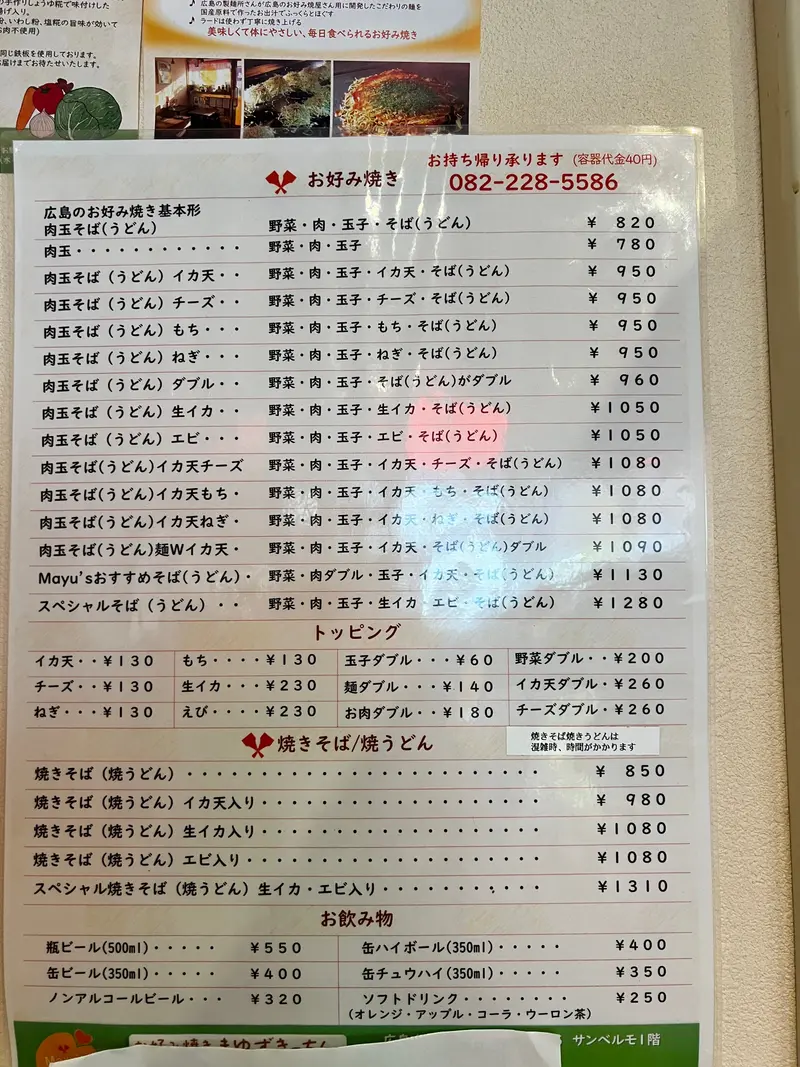 の手作りしょうゆ糀で味付けした
揚げ入り。
粉、いわし粉、塩糀の旨味が効いて
お肉不使用)
同じ鉄板を使用しております。
届けまでお待たせいたします。
♪ 広島の製麺所さんが広島のお好み焼屋さん用に開発したこだわりの麺を
国産原料で作ったお出汁でふっくらとほぐす
♪ ラードは使わず丁寧に焼き上げる
美味しくて体にやさしい、毎日食べられるお好み焼き
お持ち帰り承ります (容器代金40円)
お好み焼き 082-228-5586
広島のお好み焼き基本形
肉玉そば(うどん) 野菜・肉・玉子・そば(うどん) ¥ 820
肉玉・・・・・・・・・・・・ 野菜・肉・玉子 ¥ 780
肉玉そば(うどん)イカ天・・ 野菜・肉・玉子・イカ天・そば(うどん) ¥ 950
肉玉そば(うどん)チーズ・・ 野菜・肉・玉子・チーズ・そば(うどん) ¥ 950
肉玉そば(うどん)もち・・・ 野菜・肉・玉子・もち・そば(うどん) ¥ 950
肉玉そば(うどん)ねぎ・・・ 野菜・肉・玉子・ねぎ・そば(うどん) ¥ 950
肉玉そば(うどん)ダブル・・ 野菜・肉・玉子・そば(うどん)がダブル ¥ 960
肉玉そば(うどん)生イカ・・ 野菜・肉・玉子・生イカ・そば(うどん) ¥1050
肉玉そば(うどん)エビ・・・ 野菜・肉・玉子・エビ・そば(うどん) ¥1050
肉玉そば(うどん)イカ天チーズ 野菜・肉・玉子・イカ天・チーズ・そば(うどん) ¥1080
肉玉そば(うどん)イカ天もち・ 野菜・肉・玉子・イカ天・もち・そば(うどん) ¥1080
肉玉そば(うどん)イカ天ねぎ・ 野菜・肉・玉子・イカ天・ねぎ・そば(うどん) ¥1080
肉玉そば(うどん)麺Wイカ天・ 野菜・肉・玉子・イカ天・そば(うどん)ダブル ¥1090
Mayu'sおすすめそば(うどん)・ 野菜・肉ダブル・玉子・イカ天・そば(うどん) ¥1130
スペシャルそば(うどん)・・ 野菜・肉・玉子・生イカ・エビ・そば(うどん) ¥1280
トッピング
イカ天・・¥130 もち・・・・¥130 玉子ダブル・・・¥60 野菜ダブル・・¥200
チーズ・・¥130 生イカ・・・¥230 麺ダブル・・・¥140 イカ天ダブル・¥260
ねぎ・・・¥130 えび・・・・¥230 お肉ダブル・・¥180 チーズダブル・¥260
焼きそば/焼うどん
焼きそば焼きうどんは
混雑時、時間がかかります
焼きそば(焼うどん)・・・・・・・・・・・・・・・・・・・・・・・・ ¥ 850
焼きそば(焼うどん)イカ天入り・・・・・・・・・・・・・・・・・・・ ¥ 980
焼きそば(焼うどん)生イカ入り・・・・・・・・・・・・・・・・・・・ ¥1080
焼きそば(焼うどん)エビ入り・・・・・・・・・・・・・・・・・・・・ ¥1080
スペシャル焼きそば(焼うどん)生イカ・エビ入り・・・・・・・・・・・ ¥1310
お飲み物
瓶ビール(500ml)・・・・・ ¥550 缶ハイボール(350ml)・・・・・ ¥400
缶ビール(350ml)・・・・・ ¥400 缶チュウハイ(350ml)・・・・・ ¥350
ノンアルコールビール・・・ ¥320 ソフトドリンク・・・・・・・・ ¥250
(オレンジ・アップル・コーラ・ウーロン茶)
お好み焼き まゆずきっちん サンベルモ1階